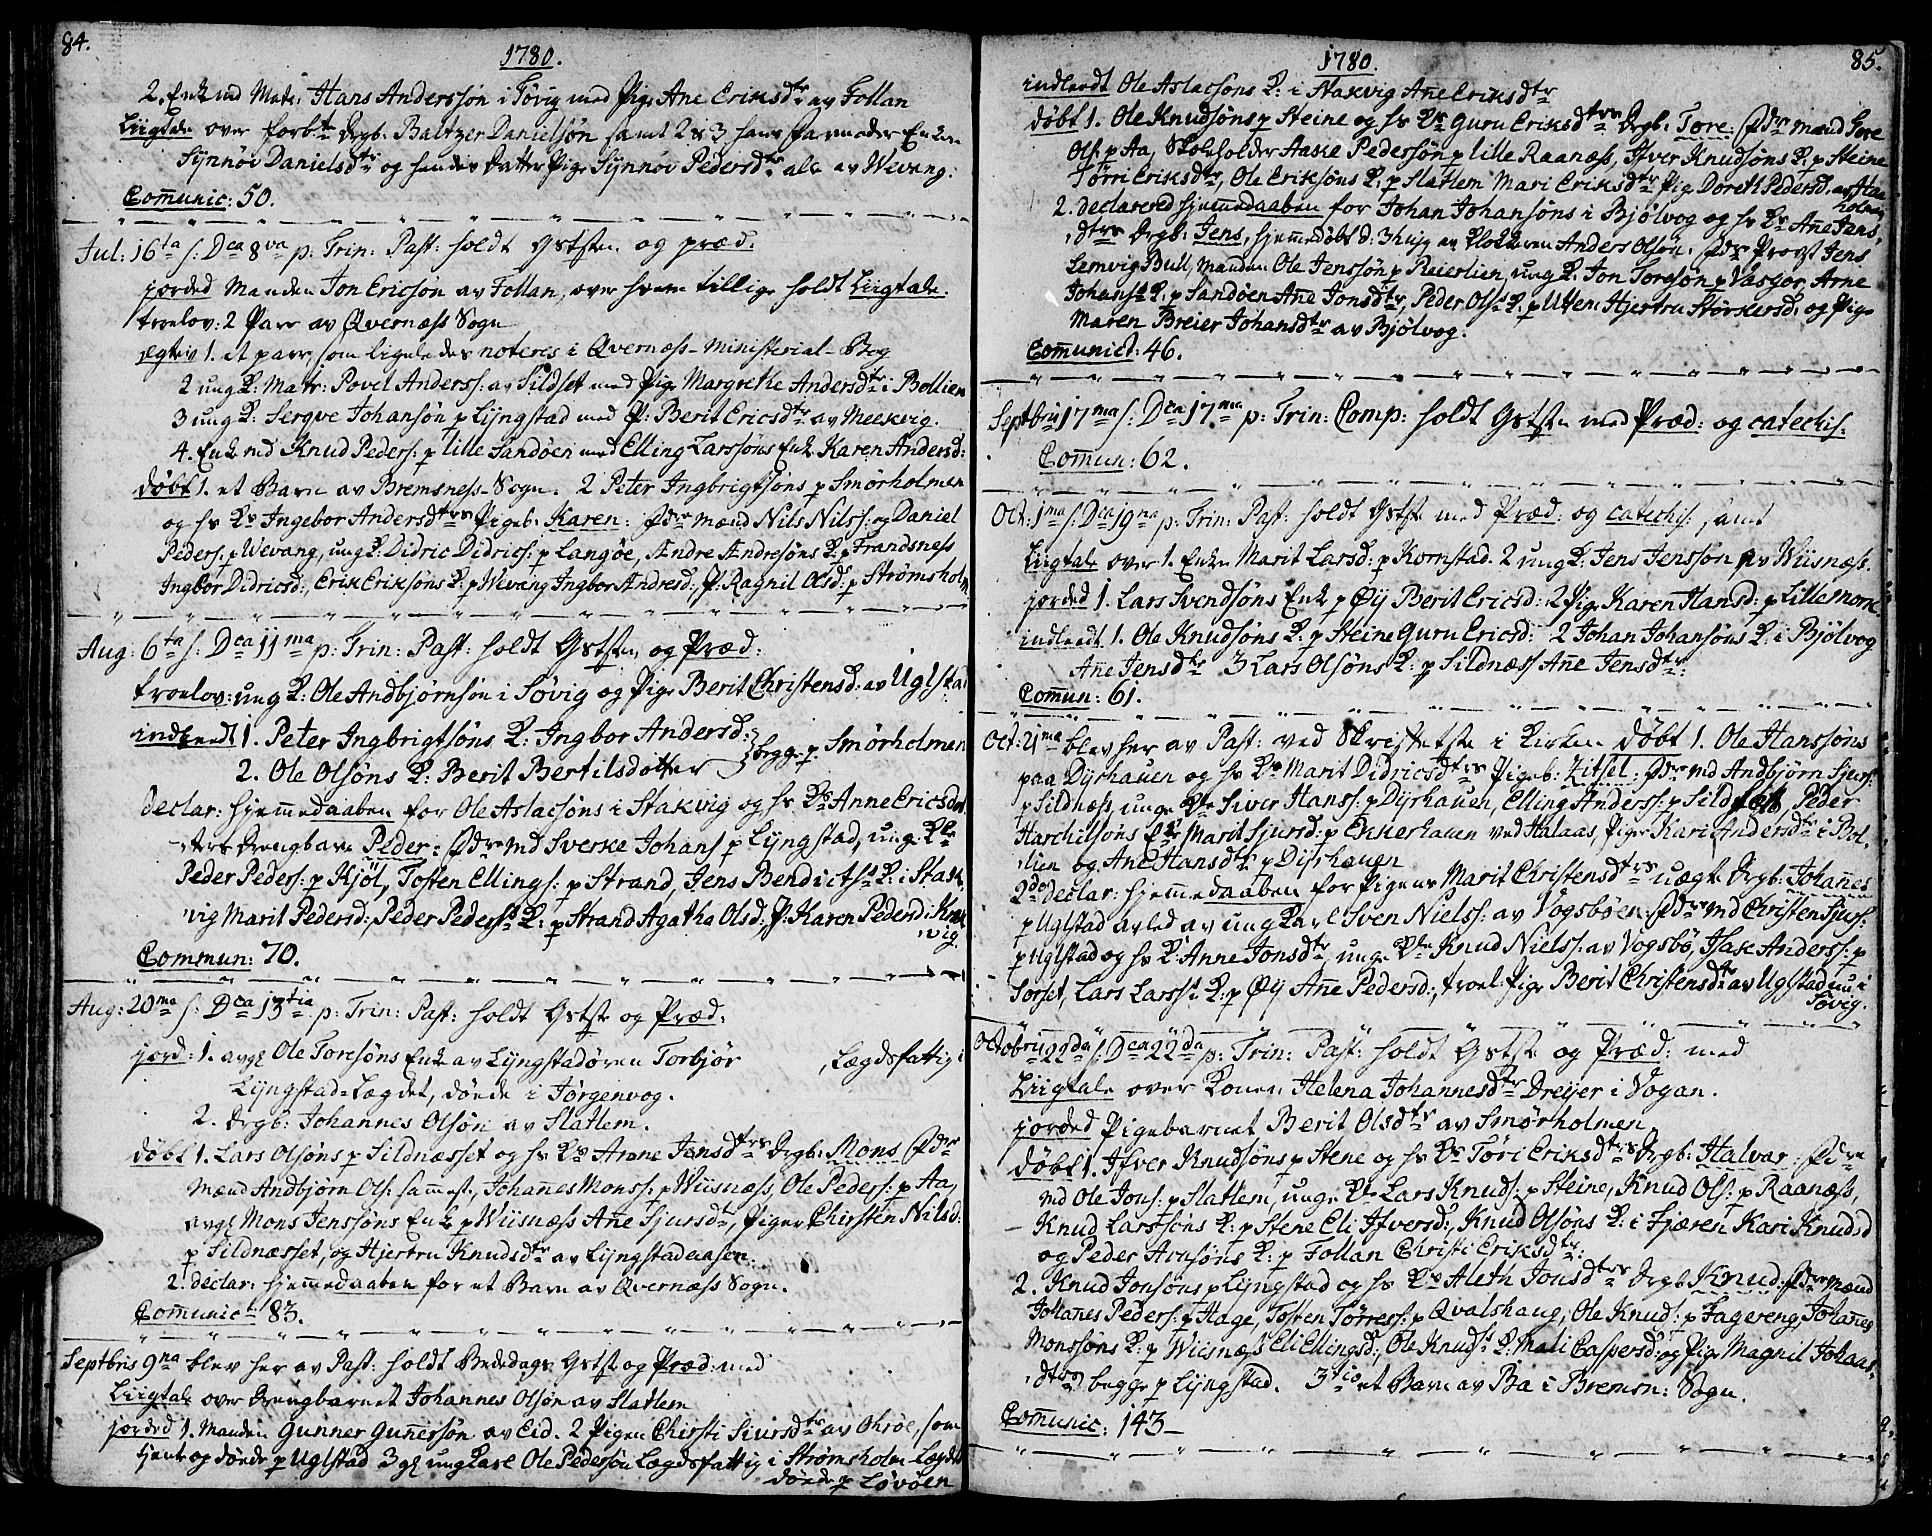 84.
1780.
2. Enkemd Mads: Hans Anderssøn i Søvig med Pige Ane Eriksdtr av Follan
Liigtale over forbte Drgb: Baltzer Danielsøn samt 2 & 3 hans Farmoder Enken
Synnøv Danielsdtr og hendes Datter Pige Synnøv Pedersdtr alle av Wevang:
Com̅unic: 50.
Jul: 16ta s: Dca 8va p: Trin: Past: holdt Gstste og præd:
jorded Manden Jon Ericsøn av Follan, over hvem tillige holdt Liigtale.
troelov: 2 Parr av Qvernæss Sogn
egteviv 1. et parr, som ligeledes noteres i Qvernæss-Ministerial-Bog
2 ungK: Matr: Povel Anderss: av Sildset med Pige Margrethe Andersdtr i Bollien
3 ung K: Sergve Johansøn p Lyngstad med P: Berit Ericsdtr av Meekvig.
4. Enkemd Knud Peders: p lille Sandøen med Elling Larssøns Enke Karen Andersd:
døbt 1. et Barn av Bremsness-Sogn. 2 Peter Ingbrigtsøns p Smørholmen
og hs Ks Ingebor Andersdtrs Pigeb: Karen: Fdre mænd Nils Nilss: og Daniel
Peders: p Wevang, ung K: Didric Didrics: p Langøe, Andre Andresøns K: p Frandsness
Ingbor Didricsd:, Erik Eriksøns K: p Wevang Ingbor Andresd:, P: Ragnil Olsd: p Strømsholm
Aug: 6ta s: Dca 11ma p: Trin: Past: holdt Gstste, og Præd:
troelov: ung K: Ole Andbjørnsøn i Søvig og Pige Berit Christensd: av Uglstad
indleedt 1. Peter Ingbrigtsøns K: Ingbor Andersd:
2. Ole Olsøns K: Berit Bertilsdotter } begge p Smørholmen
declar: hjem̅edaaben for Ole Aslacsøns i Stakvig og hs Ks Anne Ericsdot
ters Drengbarn Peder: Fdre md Sverke Johans p Lyngstad, ung: Kle
Peder Peders: p Kjöl, Tosten Ellings: p Strand, Jens Bendictss K: i Stak-
vig Marit Pedersd:, Peder Pederss K: p Strand Agatha Olsd:, P: Karen Pedersd:
vig
Commun: 70.
Aug: 20ma s: Dca 13tia p: Trin: Past: holdt Gstste og Præd:
jord: 1. avgl Ole Toresøns Enke av Lyngstadøren Torbjør , Lægdsfattig i
Lyngstad-Lægdet, døde i Jørgenvog.
2. Drgb: Johannes Olsøn av Slatlem.
døbt 1. Lars Olsøns p Sildnæsset og hs Ks Anne Jensdtrs Drgb: Mons Fdre
Mænd Andbjørn Ols: sam̅est:, Johan̅es Monss: p Wiisnæss, Ole Peders: p Aa,
avgl Mons Jenssøns Enke p Wiisnæss Ane Sjursdtr, Piger Chirsten Nilsd:
p Sildnæsset, og Hjertru Knudsdtr av Lyngstadaasen.
2. declar: hjem̅edaaben for et Barn av Qvernæss Sogn.
Com̅unict: 83.
Septbris 9na blev her av Past: holdt Bededags Gstste og Præd: med
Liigtale over Drengbarnet Johannes Olsøn av Slatlem
jorded 1. Manden Gunner Gun̅ersøn av Eid. 2 Pigen Chirsti Siursdtr av Ohrøe, som
tjente og døde p Uglstad 3 gl ungkarl Ole Pedersøn Lægdsfattig i Strømsholm-Lægdet
døde p Løvøen
1780.
85.
indleedt Ole Aslacsøns K: i Stakvig An̅e Eriksdtr
døbt 1. Ole Knudsøns p Steine og hs Ks Guru Eriksdtrs Drgb: Tore: Fdre mænd Tore
Ols: p Aa, Skoleholder Aaske Pedersøn p lille Raanæss, Ifver Knudsøns K: p Steine
Törri Eriksdtr, Ole Eriksøns K: p Slatlem Mari Eriksdtr Pig Doreth Pedersd: av Ha-
holmen
2. declarered hjem̅edaaben for Johan Johansøns i Bjølvog og hs Ks An̅e Jens-
dtrs Drgb: Jens, hjem̅edøbt d: 3 hujg av Klokkeren Anders Olsøn. Fdre Provst Jens
Lemvig Bull, Manden Ole Jenssøn p Reierlien, ung K: Jon Toresøn p Vasgor, Arne
Johanss K: p Sandøen An̅e Jonsdtr, Peder Olss K: p Uttem Hjertru Størkersd: og Pige
Maren Breier Johansdtr av Bjølvog.
Com̅unict: 46.
Septbris 17ma s: Dca 17ma p: Trin: Comp: holdt Gstste med Præd: og catechis.
Com̅un: 62.
Oct: 1ma s: Dca 19na p: Trin: Past: holdt Gstste med Præd: og catechis: samt
Liigtale over 1. Enken Marit Larsd: p Kornstad. 2 ung K: Jens Jenssøn av Wiisnæss.
jorded 1. Lars Svendsøns Enke p Øy Berit Ericsd: 2 Pige Karen Hansd: p Lillemork
indleedt 1. Ole Knudsøns K: p Steine Guru Ericsd: 2 Johan Johansøns K: i Bjølvog
An̅e Jensdtr 3 Lars Olsøns K: p Sildnæss An̅e Jensdtr:
Com̅un: 61.
Oct: 21ma blev her av Past: ved Skriftetste i Kirken døbt 1. Ole Hanssøns
paa Dyrhauen og hs Ks Marit Didricsdtrs Pigeb: Zitsel: Fdre md Andbjørn Sjurs:
p Sildnæss, unge Kle Siver Hanss: p Dyrhauen, Elling Anderss: p Sildset Peder
Harchilsøns Enke Marit Sjursd: p Enkerhauen ved Halaas, Piger Kari Andersdtr i Bol-
lien og Ane Hansdtr p Dyrhauen
2do declar: hjem̅edaaben for Pigens Marit Christensdtrs uægte Drgb: Johan̅es
p Uglstad avled av ung Karl Sven Nielss: av Vogsbøen: Fdre md Christen Sjurs:
p Uglstad og hs K: Anne Jonsdtr, unge Kle Knud Nielss: av Vogsbø, Isak Anderss: p
Sorset, Lars Larss: K: p Øy An̅e Pedersd:, troel: Pige Berit Christensdtr av Uglstad nu i
Søvig.
Octobris 22da s: Dca 22da p: Trin: Past: holdt Gstste og Præd: med
Liigtale over Konen Helena Johannesdtr Dreyer i Vogan.
jorded Pigebarnet Berit Olsdtr av Smørholmen
døbt 1. Ifver Knudsøns p Stene og hs Ks Töri Eriksdtrs Drgb: Halvar: Fdre
md Ole Jons: p Slatlem, unge Kle Lars Knuds: p Steine, Knud Ols: p Raanæss,
Knud Larssøns K: p Stene Eli Ifversd:, Knud Olsøns K: i Fjæren Kari Knudsd
og Peder Arnsøns K: p Follan Christi Eriksdtr:
2. Knud Jonsøns p Lyngstad og hs Ks Aleth Jonsdtrs Drgb: Knud: Fdre mænd
Johan̅es Peders: p Hage, Tosten Tørress: p Qvalshaug, Ole Knuds: p Fagereng, Johan̅es
Monssøns K: p Wiisnæss Eli Ellingsd:, Ole Knuds: K: Mali Caspersd: og Pige Magnil Johans-
dtr begge p Lyngstad. 3tio et Barn av Ba i Bremsn: Sogn.
Com̅unic: 143